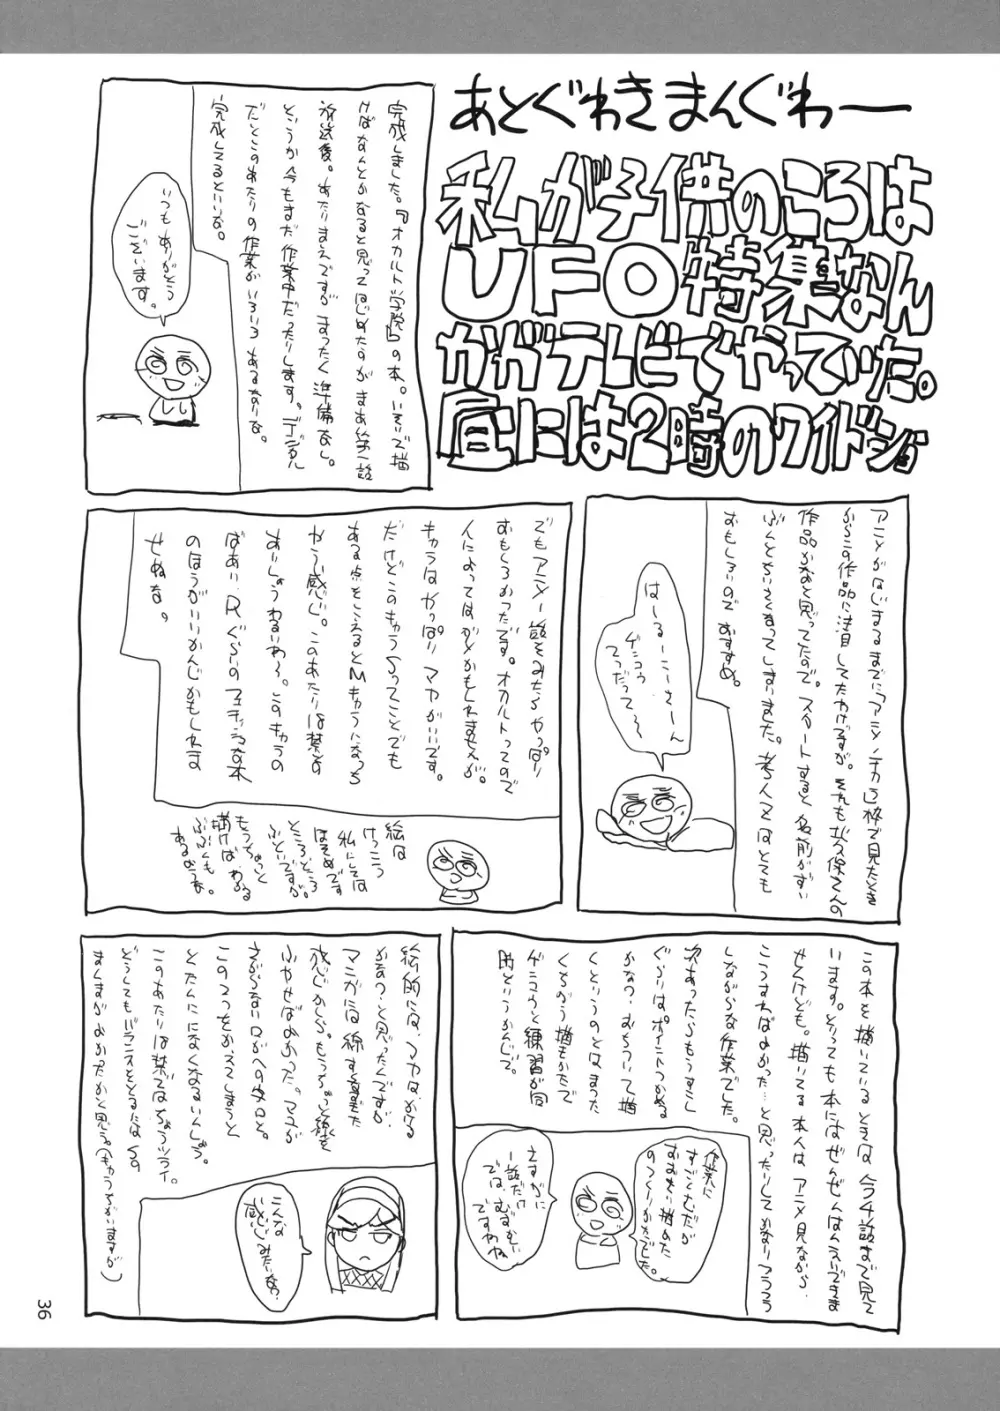 あとぐわきまんぐわー
私が子供のころは
UFO特集なん
かがテレビでやっていた。
昼には2時のワイドショ
完成しました。『オカルト学院』の本。いそいで描
けばなんとかなると見ってはじめたらがまあ第一話
放送後。あたりまえですがまったく準備なし。
というか今もまだ作業中だったりします。デジタル
だとこのあたりの作業がいろいろあるかな。
完成してるといいな。
いつもありがとう
ございます。
アニメがはじまるまでに「アニメノチカラ」枠で見たとき
からこの作品に注目してたわけですが。それも水久保さんの
作品かなと思ってたので。スタートすると名前がずい
ぶんとちいさくなってしまいました。考人又はとても
おもしろいのでおすすめ。
はーるーにーさーん
ゲンコウ
てつだって
〜
でもアニメ一話をみたらやっぱり
おもしろかったです。オカルトってので
人によってはダメかもしれませんが。
キャラはやっぱりマヤがいいです。
だけどこのキャラSってことでも
ある点をこえるとMキャラになっち
ゃう感じ。このあたりは禁書の
あいしょうわるいわ〜。このキャラの
ばあい、Rぐらいのフェチッシュな本
のほうがいいかんじかもしれま
せぬな。
絵は
けっこう
私にしては
ほそめです
ところどころ
ふといですが。
もうちょっと
描けばわかる
ぶぶんも。
あるだろうな。
この本を描いているときは今4話まで見て
います。とっても本にはぜんぜんはんえいできま
せんけども。描いてる本人はアニメ見ながら
こうすればよかった…と思ったりしてかなりフラフラ
しながらな作業でした。
次あったらもうすこし
ぐらいはポイントつかめる
かなっ。おちついて描
くというのとはまった
くちがう描きかたで
ゲンコウと練習が同
時というかんじで。
作業に
すごくむだが
おおい描きかた
のつくりかたでした。
さすがに
一話だけ
では、むずかしい
ですわね
絵的には、マヤはかなる
かなっ…と思ったんですが
マンガには線すくなめた
感じかしら。もうちょっと線を
ふやせばよかった。マユが
さがらない口がへの字口と。
この2つをかえてしまうと
とたんににてなくなるいんしょう。
このあたりは禁書ではちょうツライ。
どうしてもバランスをとるにはSの
まんまがよかったかと思う。(キャラちがいますが)
こんな
感じみたいな?
36